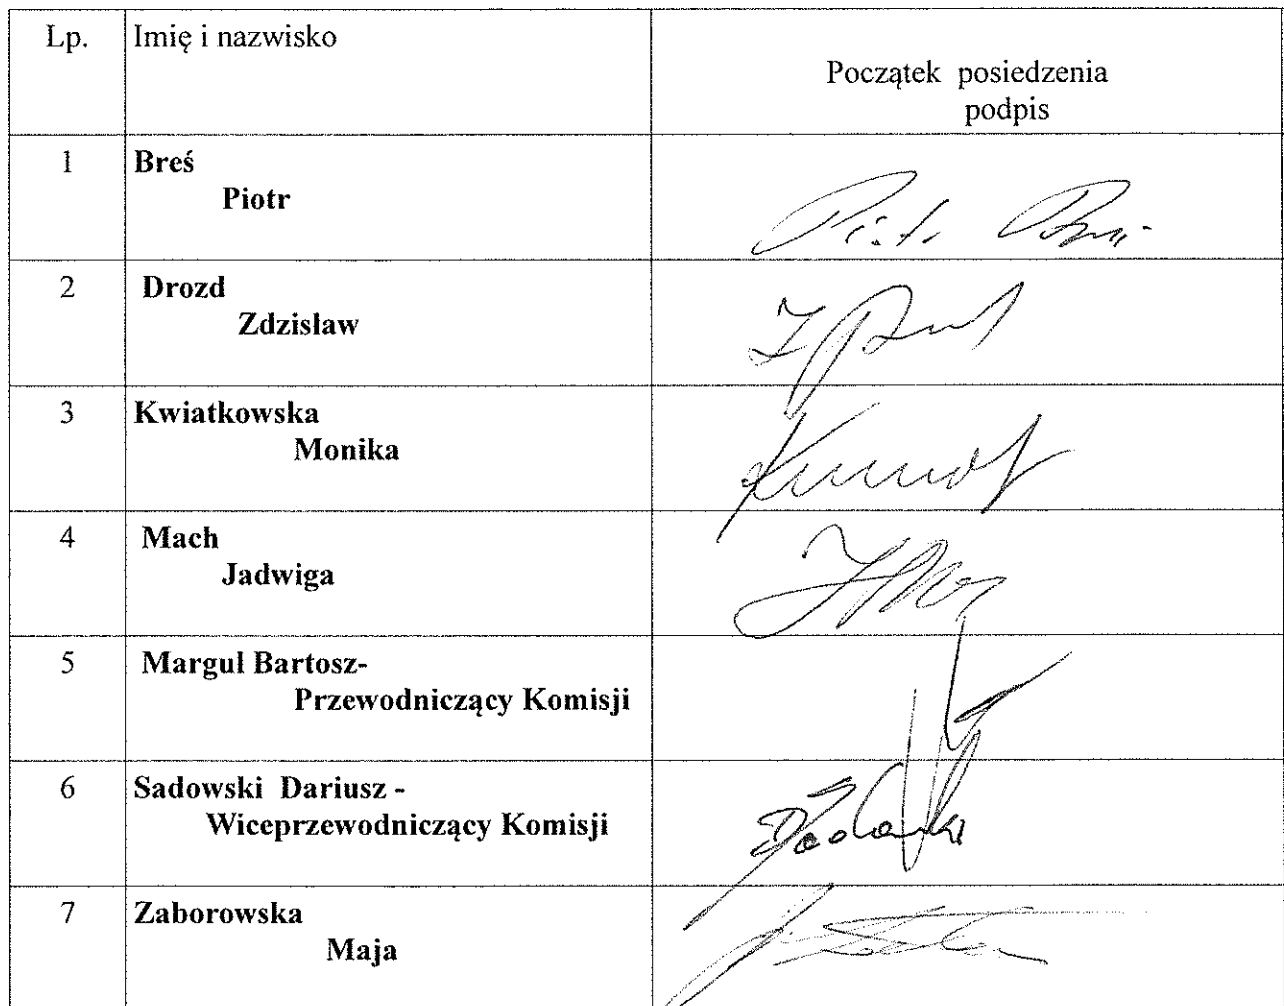 Lp. Imię i nazwisko
Początek posiedzenia
podpis
1 Breś
Piotr
2 Drozd
Zdzisław
3 Kwiatkowska
Monika
4 Mach
Jadwiga
5 Margul Bartosz-
Przewodniczący Komisji
6 Sadowski Dariusz -
Wiceprzewodniczący Komisji
7 Zaborowska
Maja